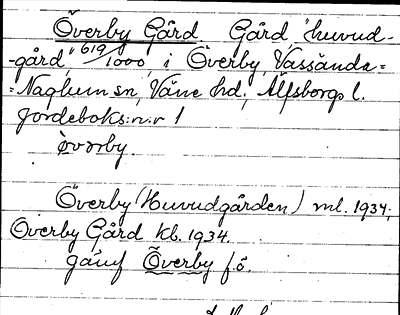 Överby Gård Gård "huvud-
-gård," 619/1000 i Överby, Vassända=
=Naglum sn, Väne hd., Älfsborgs l.
Jordeboks:n:r 1
Överby (Huvudgården) ml. 1934;
Överby Gård kb. 1934.
jämf Överby f.ö.